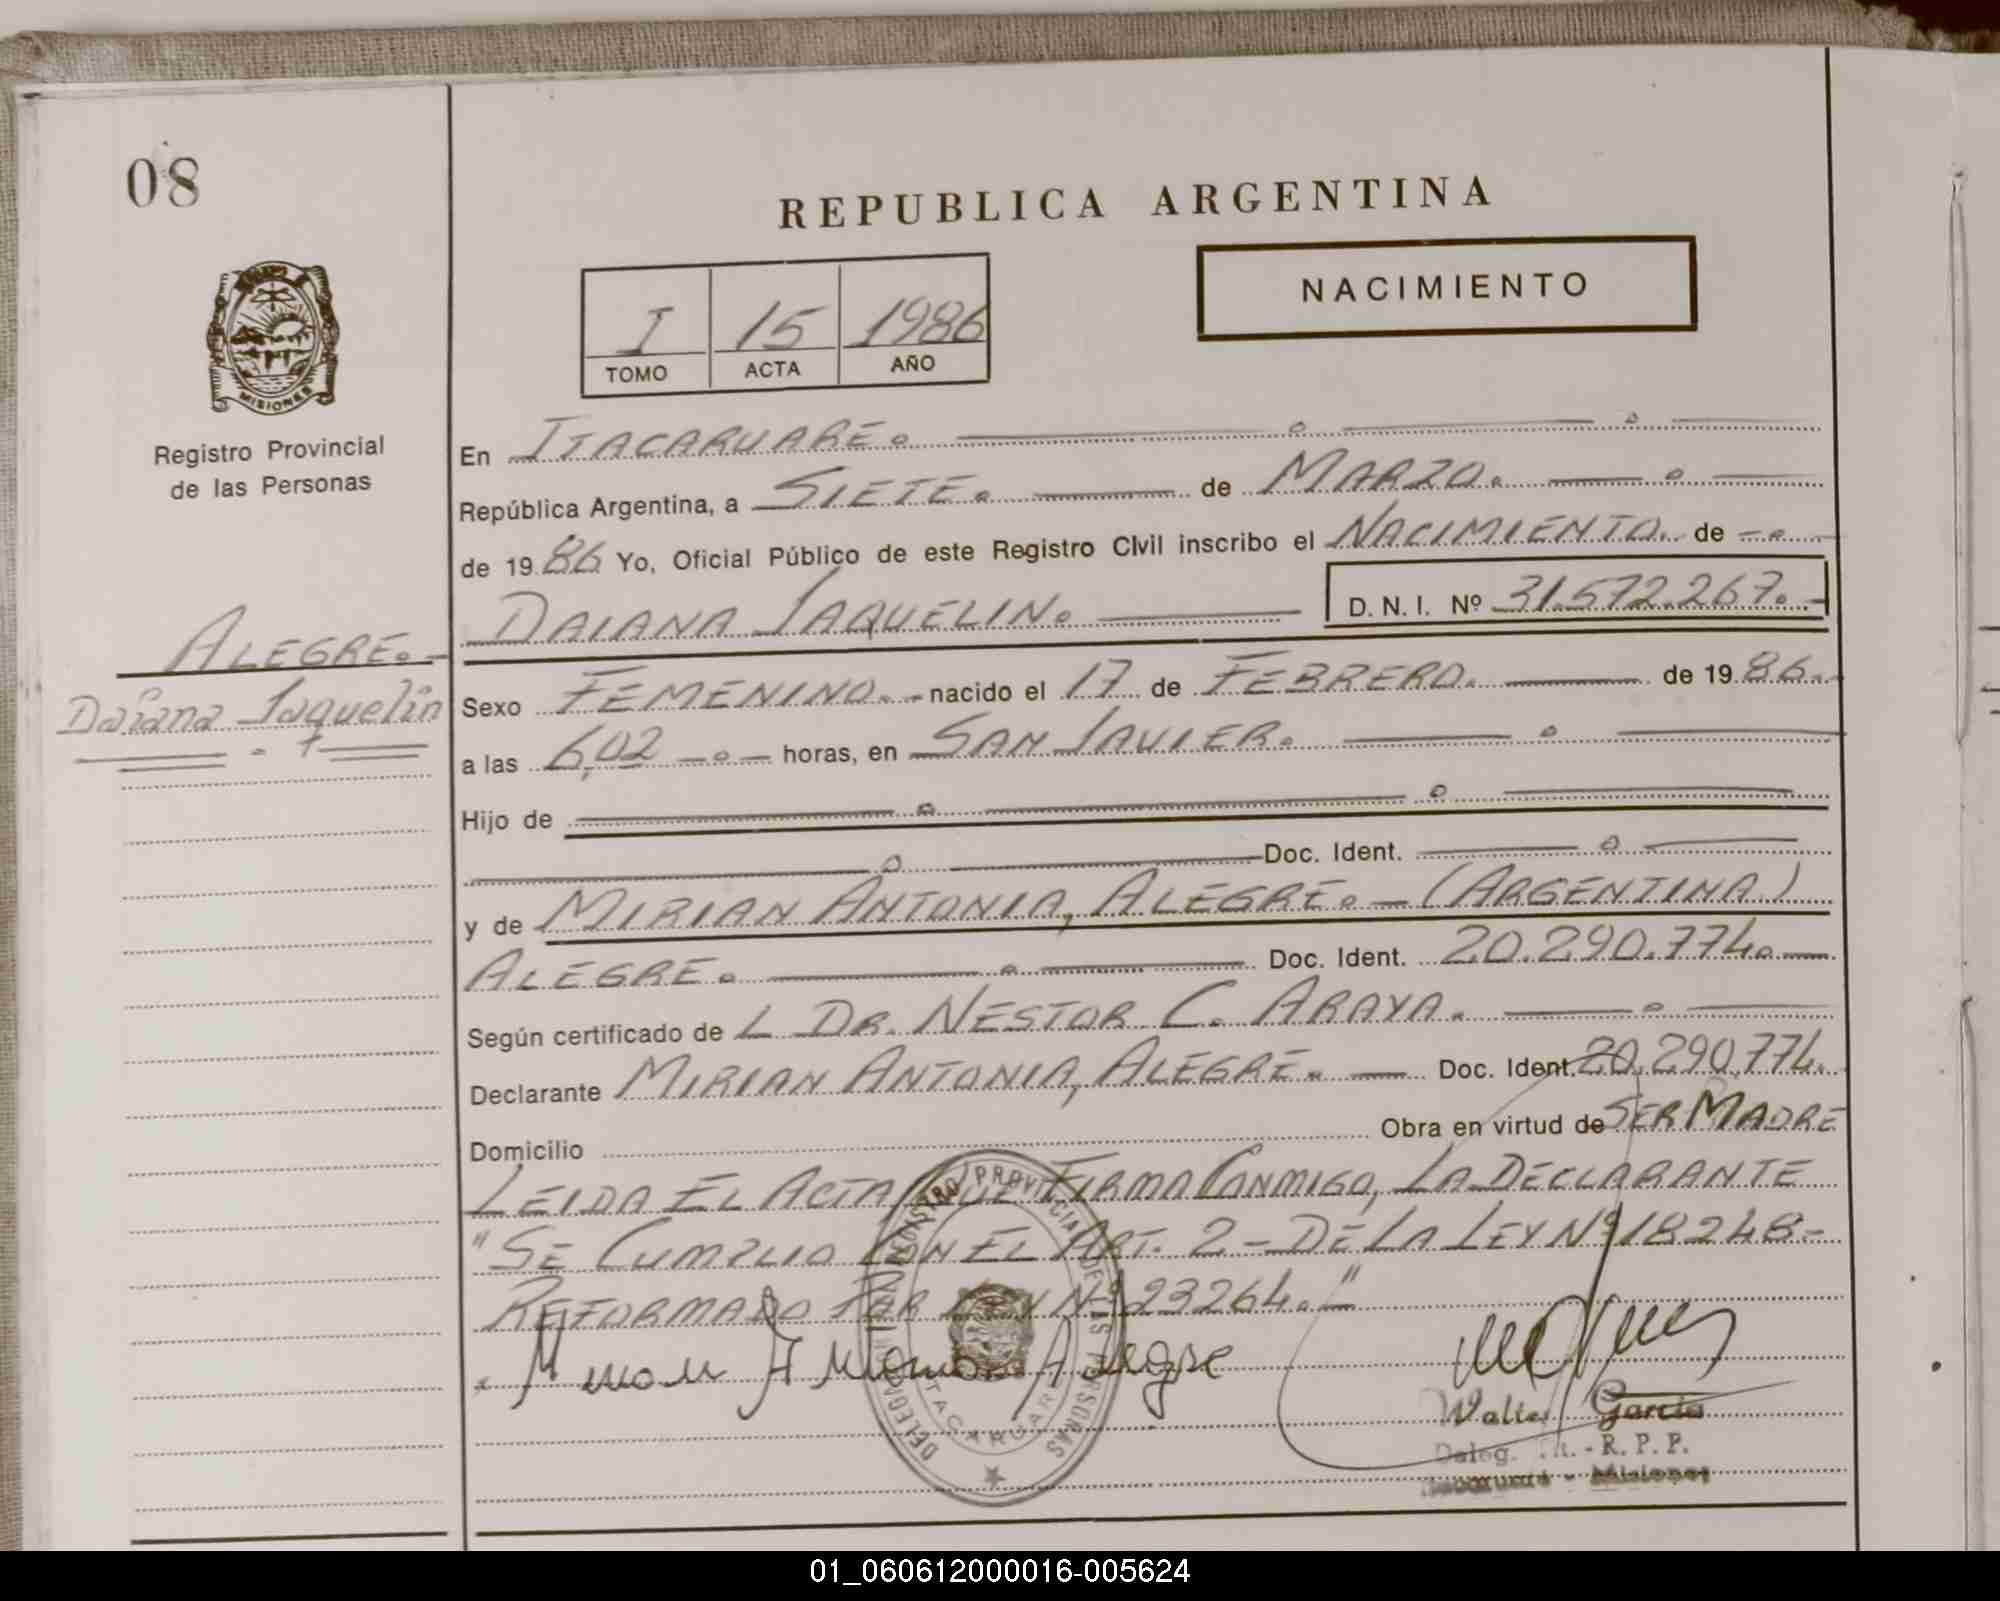 08
REPUBLICA ARGENTINA
NACIMIENTO
I 15 1986
TOMO ACTA AÑO
MISIONES
Registro Provincial
de las Personas
En ITACARUARE.
República Argentina, a SIETE. de MARZO.
de 1986 Yo, Oficial Público de este Registro Civil inscribo el NACIMIENTO. de
DAIANA JAQUELIN. D. N. I. Nº 31.572.267.
ALEGRE.
Daiana Jaquelin
Sexo FEMENINO. nacido el 17 de FEBRERO. de 1986.
a las 6,02 horas, en SAN JAVIER.
Hijo de
Doc. Ident.
y de MIRIAN ANTONIA, ALEGRE. - (ARGENTINA)
ALEGRE. Doc. Ident. 20.290.774.
Según certificado de L DR. NESTOR C. ARAYA.
Declarante MIRIAN ANTONIA, ALEGRE. Doc. Ident. 20.290.774.
Domicilio Obra en virtud de SER MADRE
LEIDA EL ACTA, FIRMA CONMIGO, LA DECLARANTE
"SE CUMPLIO CON EL ART. 2 - DE LA LEY Nº 18248-
REFORMADO POR LEY Nº 23264."
Mirian Antonia Alegre
DELEGACION REGISTRO PROVINCIAL DE LAS PERSONAS
ITACARUARE
Walter García
Deleg. - R. P. P.
Itacaruare - Misiones
01_060612000016-005624